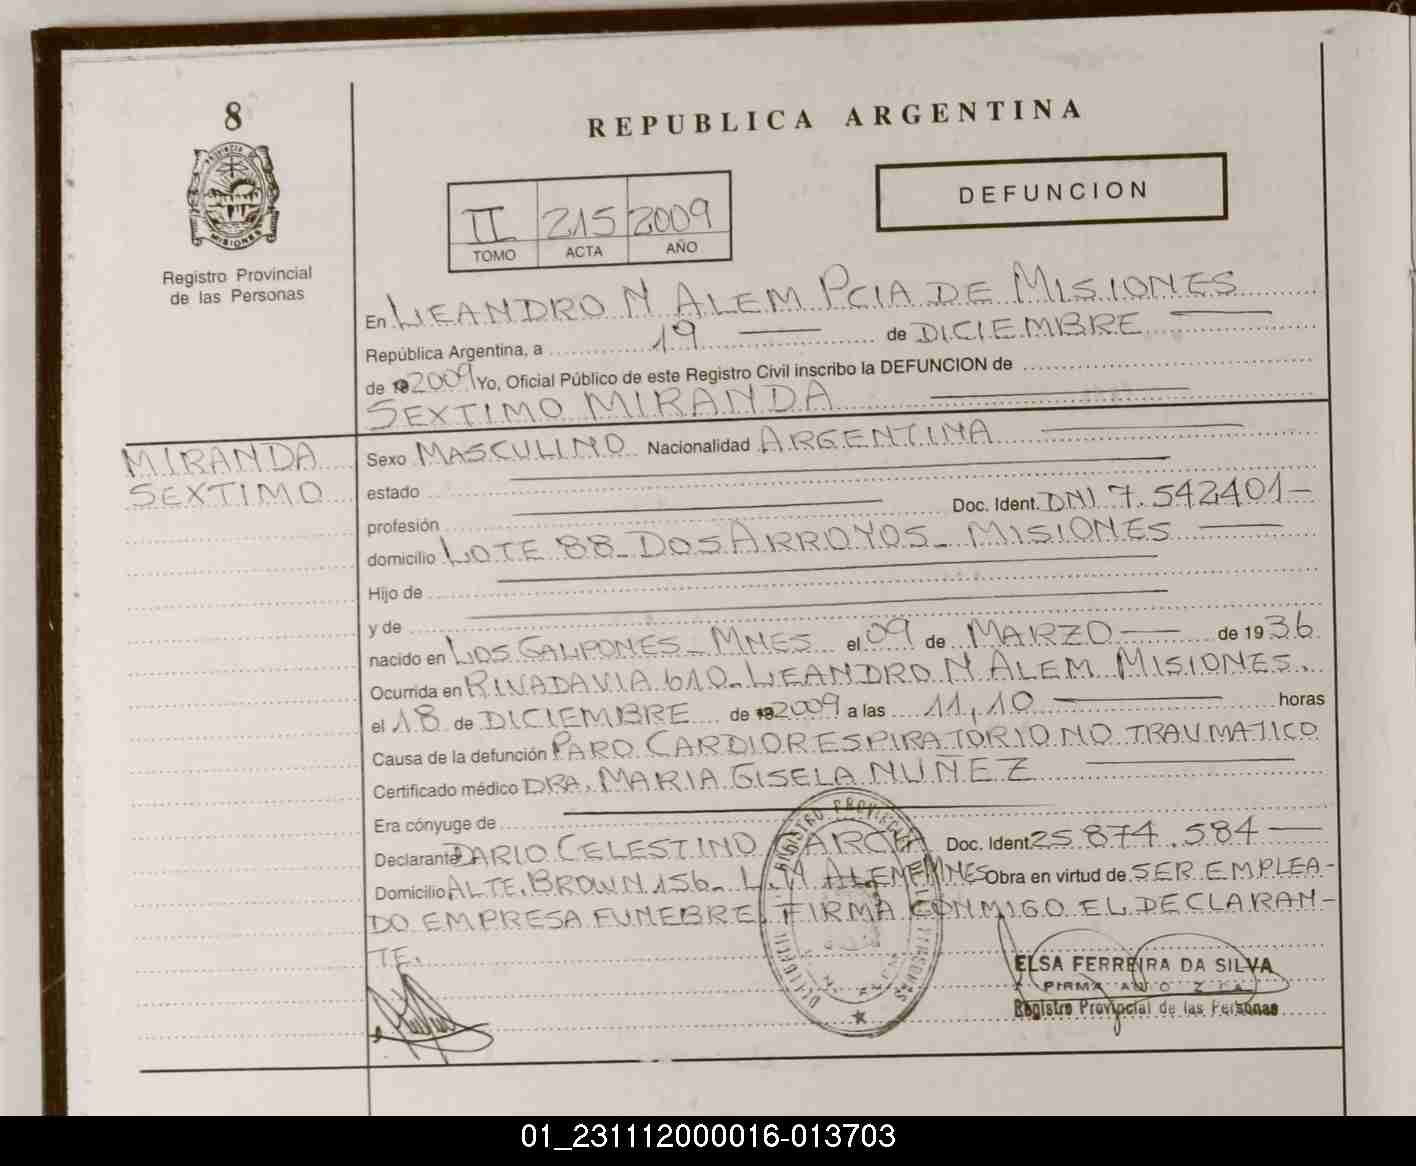 8
PROVINCIA
MISIONES
Registro Provincial
de las Personas
REPUBLICA ARGENTINA
II 215 2009
TOMO ACTA AÑO
DEFUNCION
En LEANDRO N ALEM PCIA DE MISIONES
República Argentina, a 19 de DICIEMBRE
de 2009 Yo, Oficial Público de este Registro Civil inscribo la DEFUNCION de
SEXTIMO MIRANDA
MIRANDA
SEXTIMO
Sexo MASCULINO Nacionalidad ARGENTINA
estado
profesión Doc. Ident. DNI 7.542401-
domicilio LOTE 88- DOS ARROYOS- MISIONES
Hijo de
y de
nacido en LOS GALPONES- MNES el 09 de MARZO de 1936
Ocurrida en RIVADAVIA 610- LEANDRO N ALEM MISIONES.
el 18 de DICIEMBRE de 2009 a las 11,10 horas
Causa de la defunción PARO CARDIORESPIRATORIO NO TRAUMATICO
Certificado médico DRA. MARIA GISELA NUÑEZ
Era cónyuge de
Declarante DARIO CELESTINO Doc. Ident 25.874.584
Domicilio ALTE. BROWN 156- L.N ALEM MNES Obra en virtud de SER EMPLEA-
DO EMPRESA FUNEBRE. FIRMA CONMIGO EL DECLARAN-
TE.
ELSA FERREIRA DA SILVA
Registro Provincial de las Personas
01_231112000016-013703